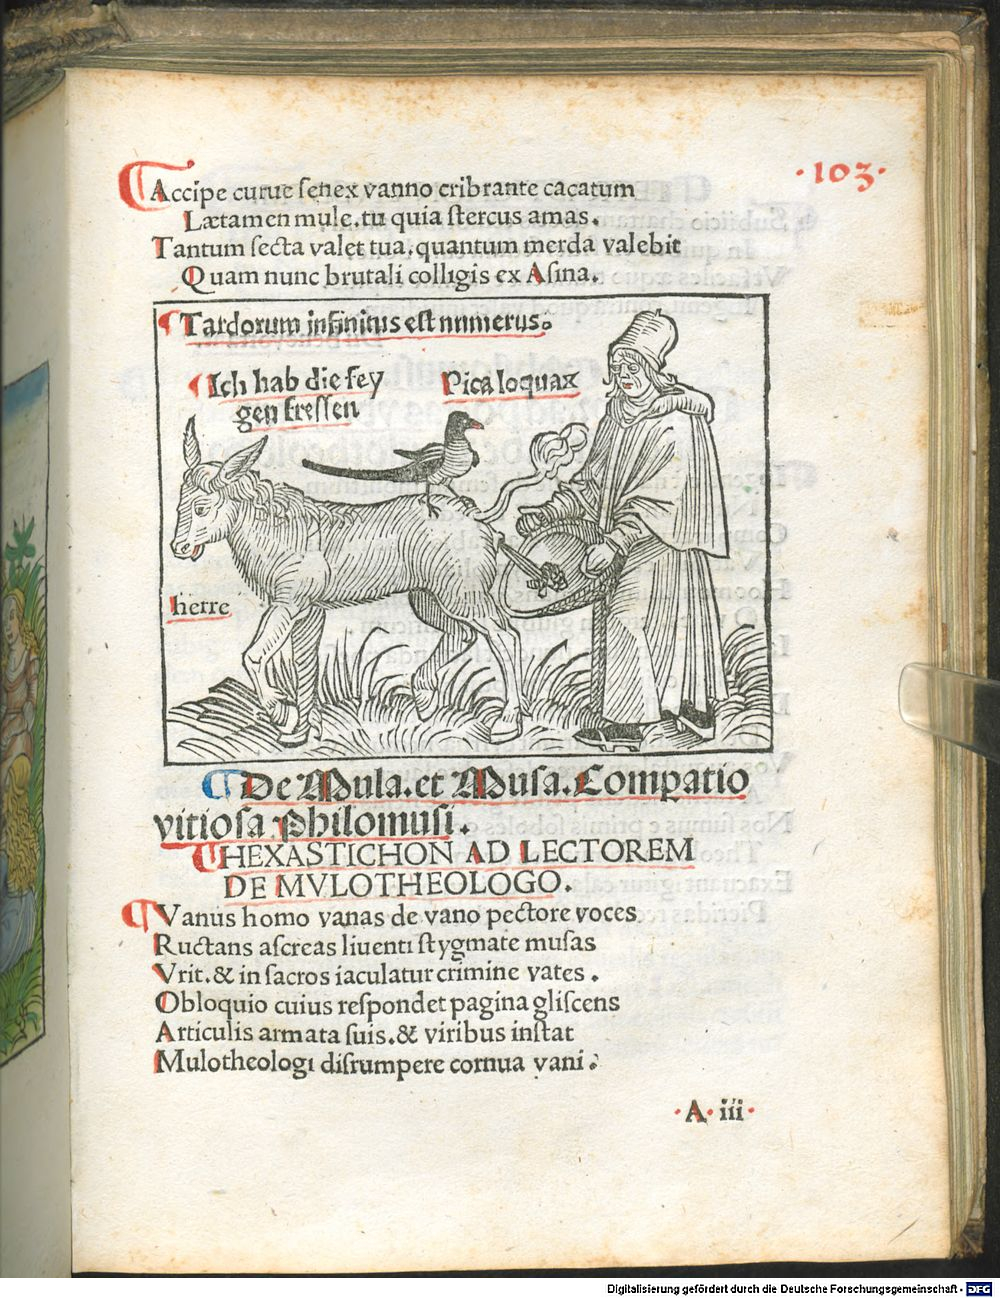 ·103·
Accipe curue senex vanno cribrante cacatum
Lætamen mule.tu quia stercus amas.
Tantum secta valet tua.quantum merda valebit
Quam nunc brutali colligis ex Asina.
Tardorum infinitus est numerus.
Ich hab die fey
gen fressen
Pica loquax
herre
De Mula.et Musa.Compatio
vitiosa Philomusi.
HEXASTICHON AD LECTOREM
DE MVLOTHEOLOGO.
Vanus homo vanas de vano pectore voces
Ructans ascreas liuenti stygmate musas
Vrit.& in sacros iaculatur crimine vates.
Obloquio cuius respondet pagina gliscens
Articulis armata suis.& viribus instat
Mulotheologi disrumpere cornua vani.
·A·iii·
Digitalisierung gefördert durch die Deutsche Forschungsgemeinschaft - DFG